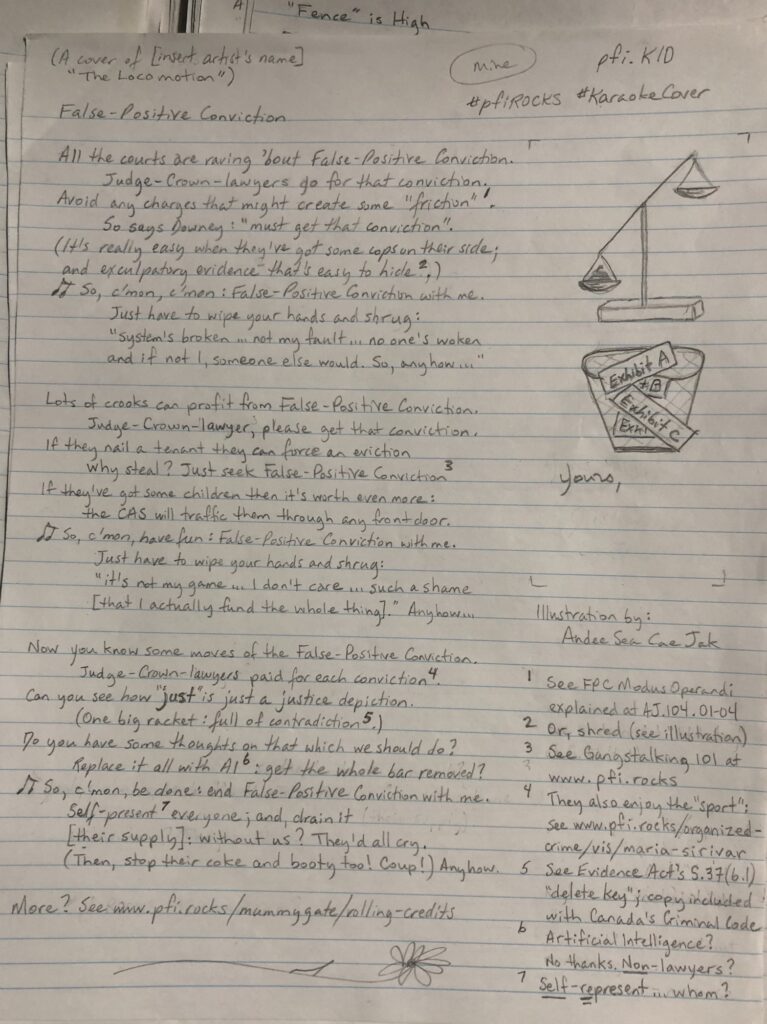 A
"Fence" is High
(A cover of [insert artist's name]
"The Locomotion")
mine
pfi.KID
#pfiROCKS #KaraokeCover
False-Positive Conviction
All the courts are raving 'bout False-Positive Conviction.
Judge-Crown-lawyers go for that conviction.
Avoid any charges that might create some "friction"1.
So says Downey: "must get that conviction".
(It's really easy when they've got some cops on their side;
and exculpatory evidence that's easy to hide2,)
♫ So, c'mon, c'mon: False-Positive Conviction with me.
Just have to wipe your hands and shrug:
"system's broken... not my fault... no one's woken
and if not I, someone else would. So, anyhow..."
Lots of crooks can profit from False-Positive Conviction.
Judge-Crown-lawyer, please get that conviction.
If they nail a tenant they can force an eviction
why steal? Just seek False-Positive Conviction3
If they've got some children then it's worth even more:
the CAS will traffic them through any front door.
♫ So, c'mon, have fun: False-Positive Conviction with me.
Just have to wipe your hands and shrug:
"it's not my game... I don't care... such a shame
[that I actually fund the whole thing]." Anyhow...
Now you know some moves of the False-Positive Conviction.
Judge-Crown-lawyers paid for each conviction4.
Can you see how "just" is just a justice depiction.
(One big racket: full of contradiction5.)
Do you have some thoughts on that which we should do?
Replace it all with AI6: get the whole bar removed?
♫ So, c'mon, be done: end False-Positive Conviction with me.
Self-present7 everyone; and, drain it
[their supply]: without us? They'd all cry.
(Then, stop their coke and booty too! Coup!) Anyhow.
More? See www.pfi.rocks/mummygate/rolling-credits
Exhibit A
#B
Exhibit C
Exhi
yours,
Illustration by:
Andee Sea Cae Jak
1 See FPC Modus Operandi
explained at AJ.104.01-04
2 Or, shred (see illustration)
3 See Gangstalking 101 at
www.pfi.rocks
4 They also enjoy the "sport":
see www.pfi.rocks/organized-
crime/vis/maria-sirivar
5 See Evidence Act's S.37(6.1)
"delete key"; copy included
with Canada's Criminal Code
6 Artificial Intelligence?
No thanks. Non-lawyers?
7 Self-represent... whom?